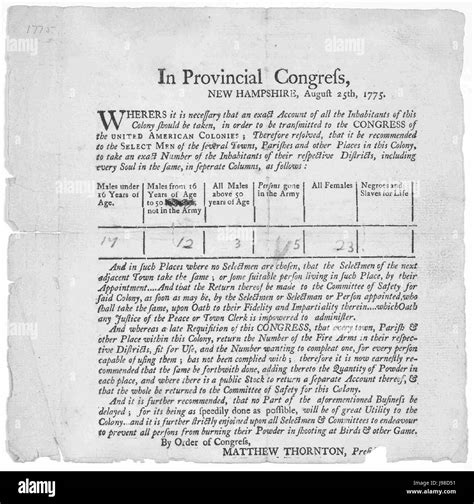 1775.
In Provincial Congreſs,
NEW HAMPSHIRE, Auguſt 25th, 1775.
WHEREAS it is neceſſary that an exact Account of all the Inhabitants of this
Colony ſhould be taken, in order to be tranſmitted to the CONGRESS of
the UNITED AMERICAN COLONIES; Therefore reſolved, that it be recommended
to the SELECT MEN of the ſeveral Towns, Pariſhes and other Places in this Colony,
to take an exact Number of the Inhabitants of their reſpective Diſtricts, including
every Soul in the ſame, in ſeperate Columns, as follows:
Males under 16 Years of Age.
Males from 16 Years of Age to 50 not in the Army
All Males above 50 Years of Age
Perſons gone in the Army
All Females
Negroes and Slaves for Life
17 12 3 5 23
And in ſuch Places where no Selectmen are choſen, that the Selectmen of the next
adjacent Town take the ſame; or ſome ſuitable perſon living in ſuch Place, by their
Appointment....And that the Return thereof be made to the Committee of Safety for
ſaid Colony, as ſoon as may be, by the Selectmen or Selectman or Perſon appointed, who
ſhall take the ſame, upon Oath to their Fidelity and Impartiality therein....which Oath
any Juſtice of the Peace or Town Clerk is impowered to adminiſter.
And whereas a late Requiſition of this CONGRESS, that every town, Pariſh &
other Place within this Colony, return the Number of the Fire Arms in their reſpec-
tive Diſtricts, fit for Uſe, and the Number wanting to compleat one, for every perſon
capable of uſing them; has not been complied with; therefore it is now earneſtly re-
commended that the ſame be forthwith done, adding thereto the Quantity of Powder in
each place, and where there is a public Stock to return a ſeparate Account thereof, &
that the whole be returned to the Committee of Safety for this Colony.
And it is further recommended, that no Part of the aforementioned Buſineſs be
delayed; for its being as ſpeedily done as poſſible, will be of great Utility to the
Colony...and it is further ſtrictly enjoined upon all Selectmen & Committees to endeavour
to prevent all perſons from burning their Powder in ſhooting at Birds & other Game.
By Order of Congreſs,
MATTHEW THORNTON, Preſ
alamy stock photo
J98D51
www.alamy.com